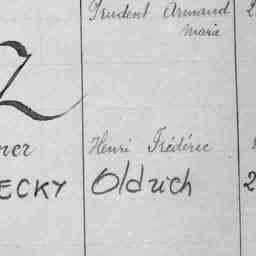 Prudent Armand 2
Marie
Z
ner Henri Frédéric
ECKY Oldrich 2